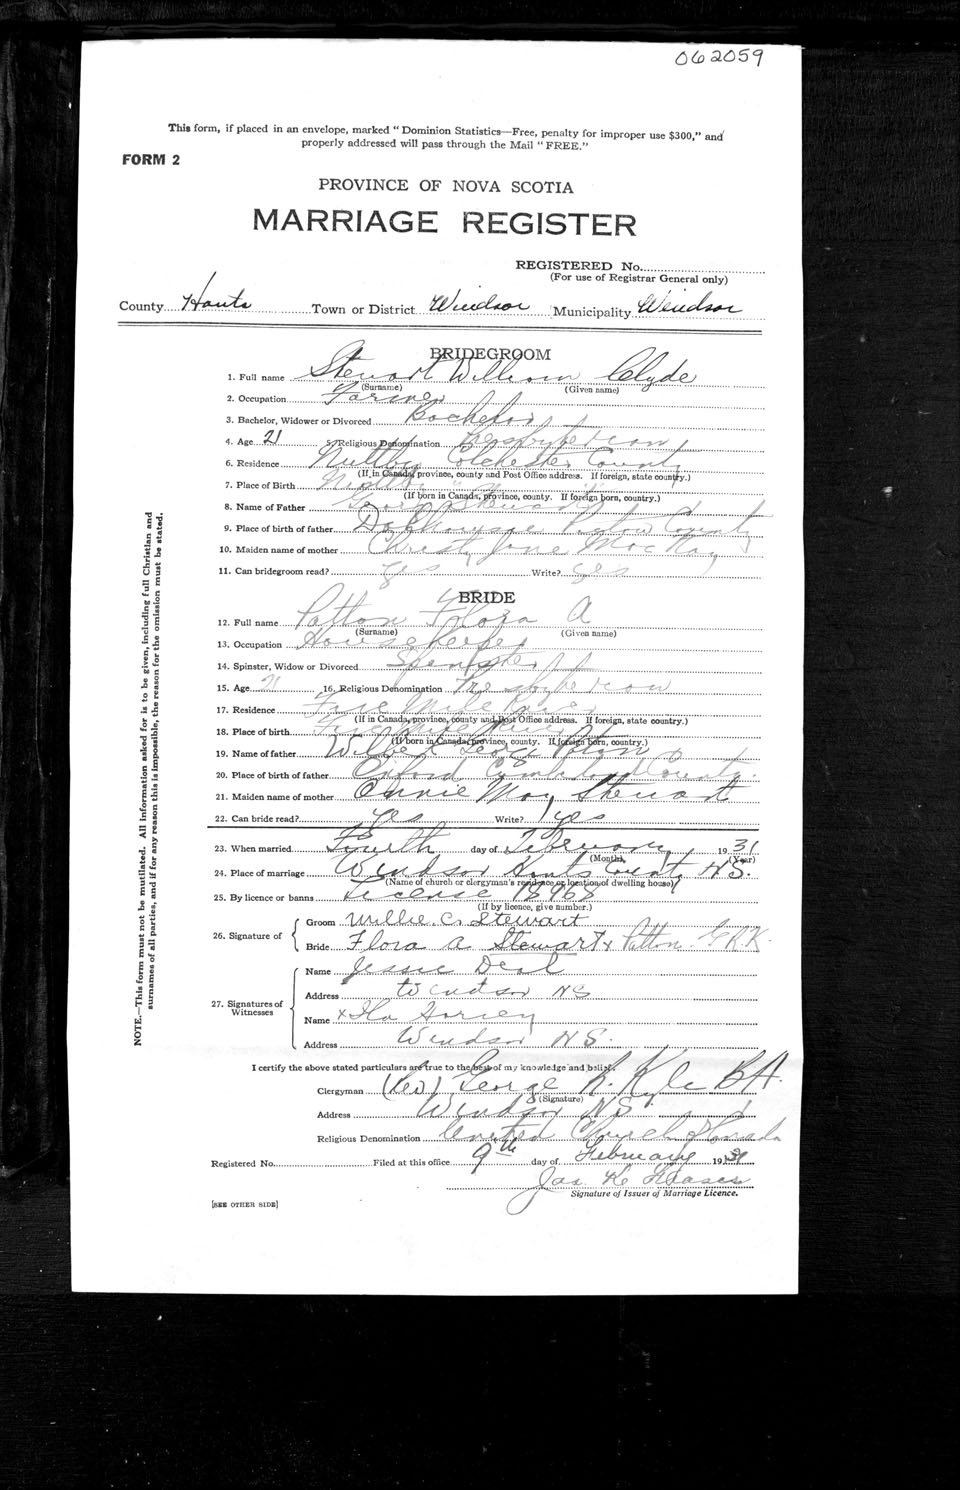 062059
This form, if placed in an envelope, marked "Dominion Statistics—Free, penalty for improper use $300," and
properly addressed will pass through the Mail "FREE."
FORM 2
PROVINCE OF NOVA SCOTIA
MARRIAGE REGISTER
REGISTERED No.
(For use of Registrar General only)
County Hants Town or District Windsor Municipality Windsor
BRIDEGROOM
1. Full name Stewart William Clyde
(Surname) (Given name)
2. Occupation Farmer
3. Bachelor, Widower or Divorced Bachelor
4. Age 21 5. Religious Denomination Presbyterian
6. Residence Nuttby Colchester County
(If in Canada, province, county and Post Office address. If foreign, state country.)
7. Place of Birth Nuttby " "
(If born in Canada, province, county. If foreign born, country.)
8. Name of Father George Stewart
9. Place of birth of father Pictou County
10. Maiden name of mother Christy Jane MacKay
11. Can bridegroom read? Yes Write? Yes
BRIDE
12. Full name Patton Flora A
(Surname) (Given name)
13. Occupation Housekeeper
14. Spinster, Widow or Divorced Spinster
15. Age 21 16. Religious Denomination Presbyterian
17. Residence Five Mile River
(If in Canada, province, county and Post Office address. If foreign, state country.)
18. Place of birth Five Mile River
(If born in Canada, province, county. If foreign born, country.)
19. Name of father Patton
20. Place of birth of father Oxford Cumberland County
21. Maiden name of mother Annie May Stewart
22. Can bride read? Yes Write? Yes
23. When married Fourth day of February 1931
(Month) (Year)
24. Place of marriage Windsor Hants County N.S.
(Name of church or clergyman's residence or location of dwelling house)
25. By licence or banns License 18968
(If by licence, give number.)
26. Signature of
Groom Willie C. Stewart
Bride Flora A Stewart x Patton G.R.K.
27. Signatures of Witnesses
Name Jessie Deal
Address Windsor NS
Name x
Address Windsor N.S.
I certify the above stated particulars are true to the best of my knowledge and belief.
Clergyman (Rev) George R. Kyle BA.
(Signature)
Address Windsor N.S.
Religious Denomination United Church of Canada
Registered No. Filed at this office 9th day of February 1931
Jas. K
Signature of Issuer of Marriage Licence.
[SEE OTHER SIDE]
NOTE.—This form must not be mutilated. All information asked for is to be given, including full Christian and
surnames of all parties, and if for any reason this is impossible, the reason for the omission must be stated.